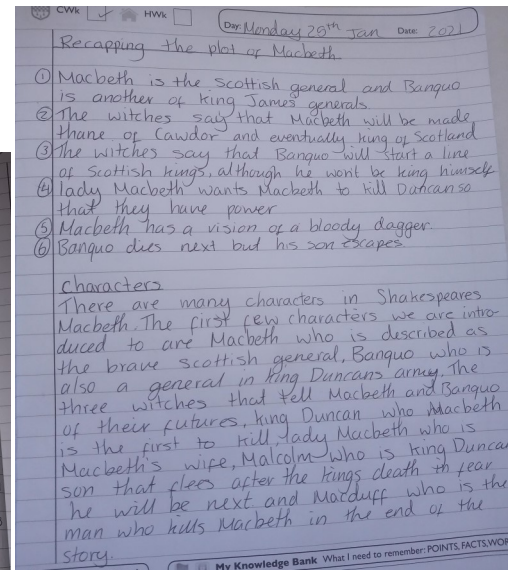 CWk HWk Day: Monday 25th Jan Date: 2021
Recapping the plot of Macbeth
① Macbeth is the Scottish general and Banquo
is another of King James generals
② The witches say that Macbeth will be made
thane of Cawdor and eventually king of Scotland
③ The witches say that Banquo will start a line
of Scottish kings, although he wont be king himself
④ lady Macbeth wants Macbeth to kill Duncan so
that they have power
⑤ Macbeth has a vision of a bloody dagger.
⑥ Banquo dies next but his son escapes
Characters
There are many characters in Shakespeares
Macbeth. The first few characters we are intro-
duced to are Macbeth who is described as
the brave scottish general, Banquo who is
also a general in King Duncans army, The
three witches that tell Macbeth and Banquo
of their futures, king Duncan who Macbeth
is the first to kill, lady Macbeth who is
Macbeth's wife, Malcolm who is king Duncan
son that flees after the kings death in fear
he will be next and Macduff who is the
man who kills Macbeth in the end of the
story.
My Knowledge Bank What I need to remember: POINTS, FACTS, WOR